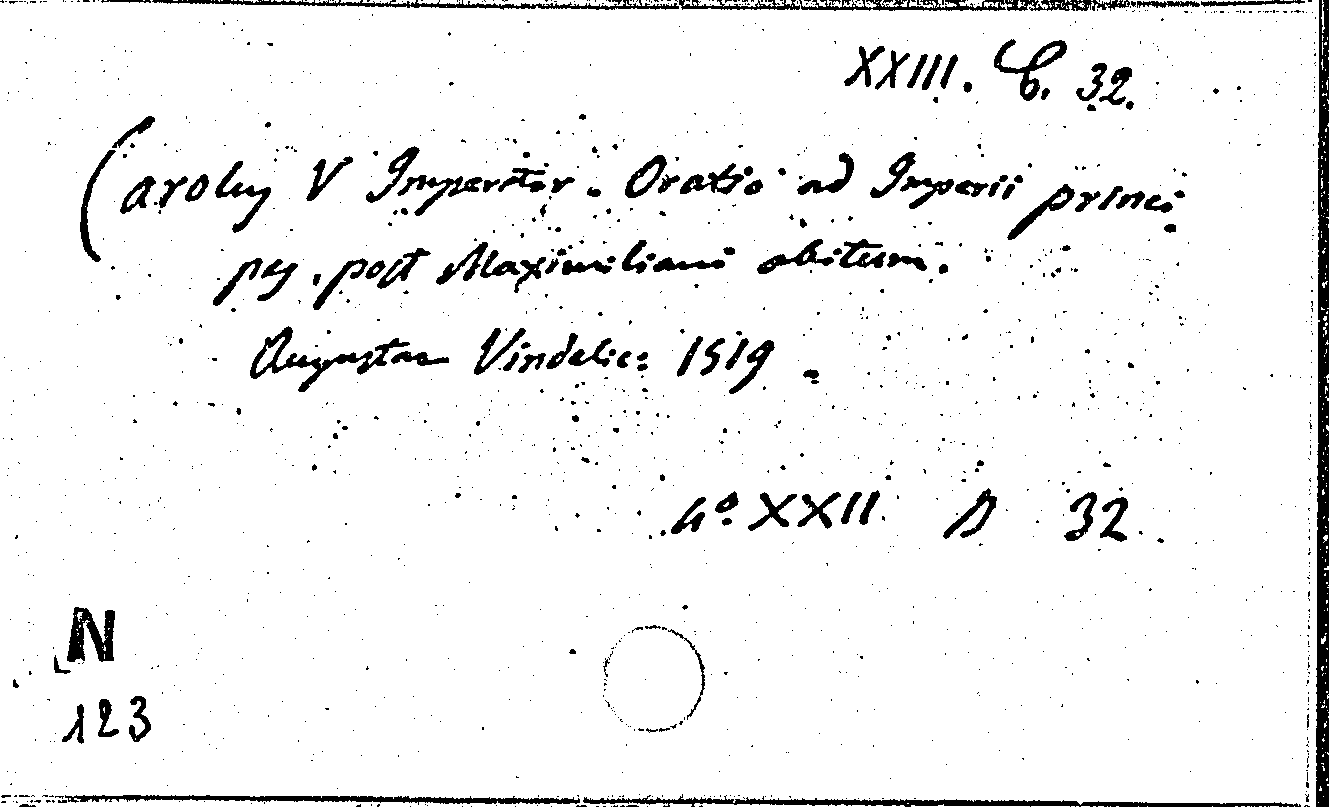 XXIII. C. 32.
Carolus V Imperator. Oratio ad Imperii princi
pes, post Maximiliani obitum.
Augustae Vindelic: 1519.
4º XXII D 32
N
123